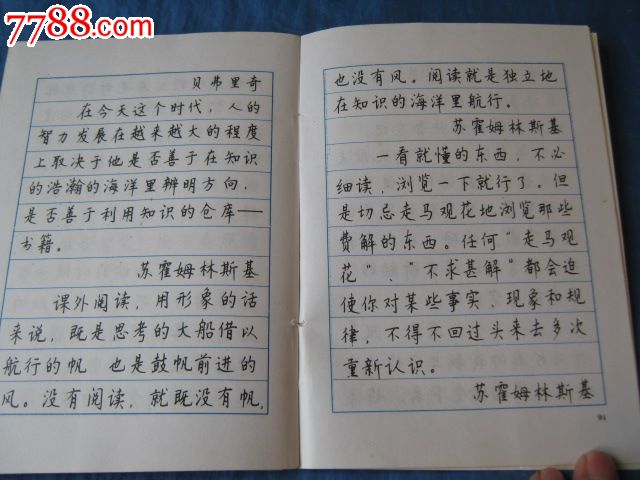 7788.com
贝弗里奇
在今天这个时代，人的
智力发展在越来越大的程度
上取决于他是否善于在知识
的浩瀚的海洋里辨明方向，
是否善于利用知识的仓库——
书籍。
苏霍姆林斯基
课外阅读，用形象的话
来说，既是思考的大船借以
航行的帆 也是鼓帆前进的
风。没有阅读，就既没有帆，
也没有风。阅读就是独立地
在知识的海洋里航行。
苏霍姆林斯基
一看就懂的东西，不必
细读，浏览一下就行了。但
是切忌走马观花地浏览那些
费解的东西。任何“走马观
花”、“不求甚解”都会迫
使你对某些事实、现象和规
律，不得不回过头来去多次
重新认识。
苏霍姆林斯基